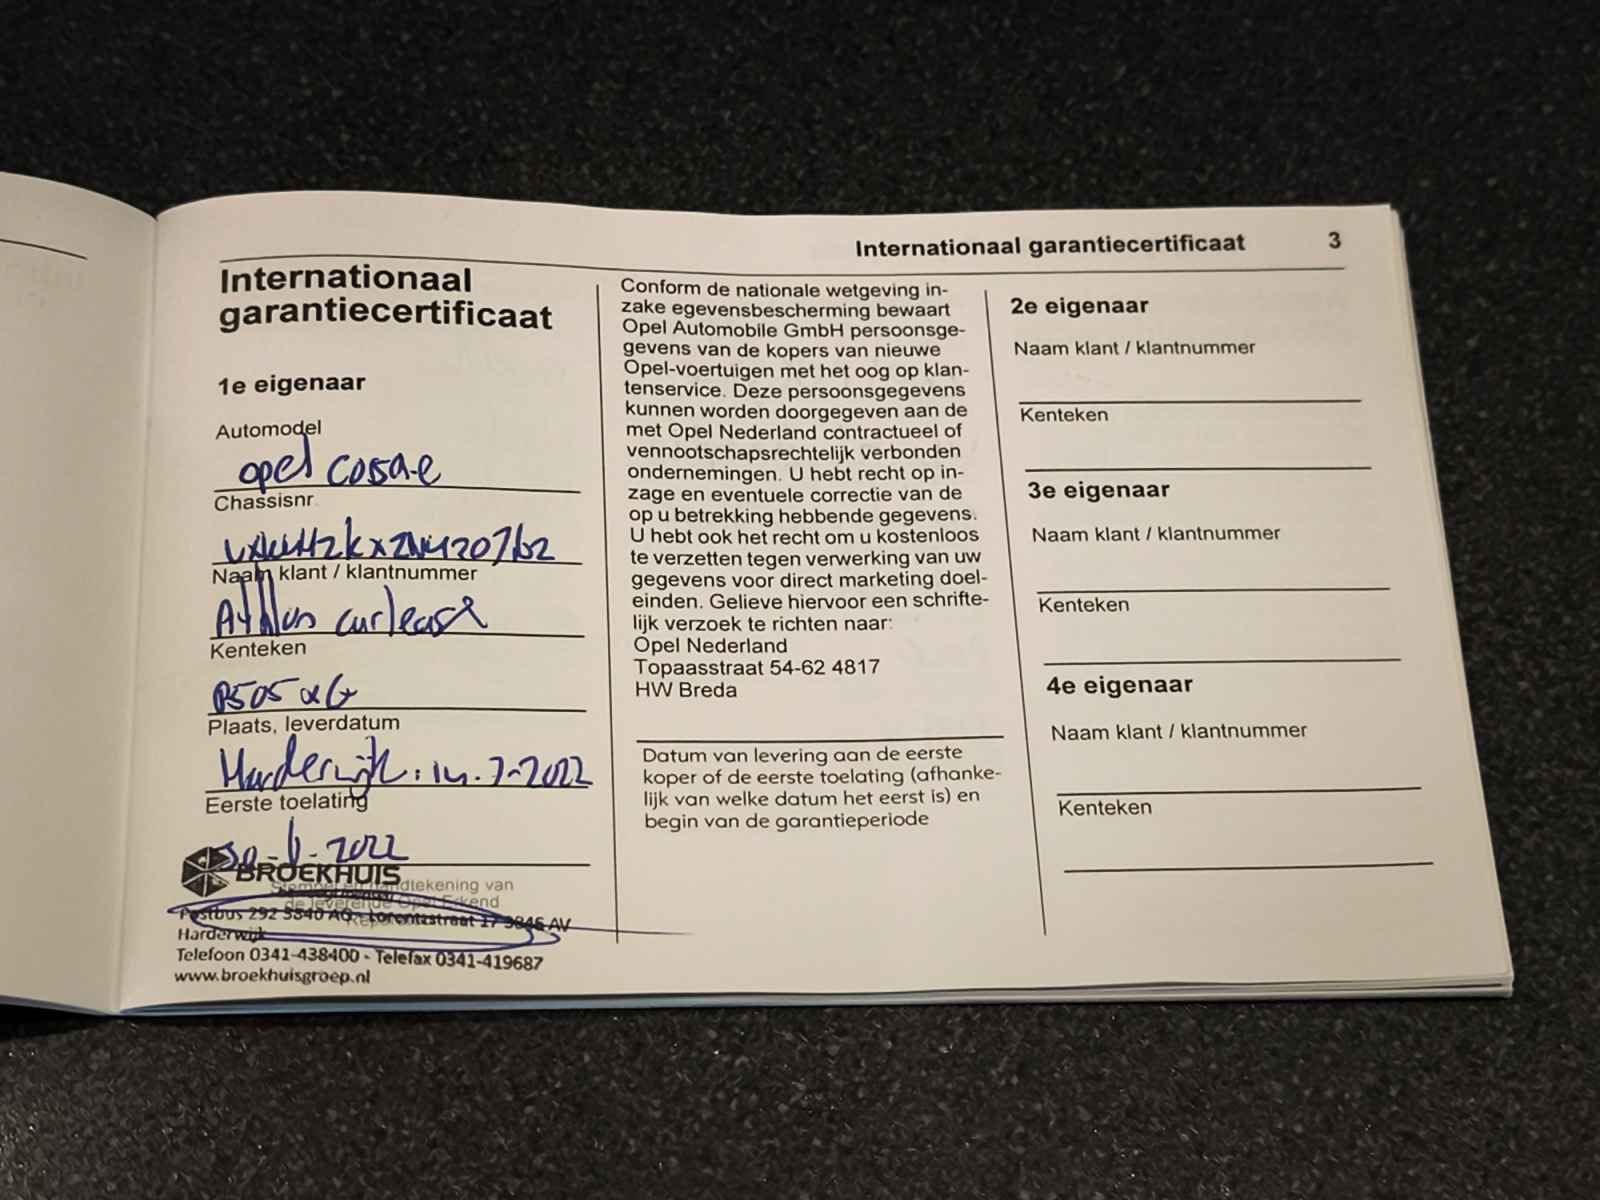 Internationaal garantiecertificaat 3
Internationaal
garantiecertificaat
1e eigenaar
Automodel
opel corsa-e
Chassisnr.
Naam klant / klantnummer
carlease
Kenteken
P505XG
Plaats, leverdatum
Harderwijk. 14.7-2022
Eerste toelating
30-6-2022
BROEKHUIS
Stempel en handtekening van
de leverende Opel Erkend
Postbus 292 3840 AG - Lorentzstraat 17 3846 AV
Harderwijk
Telefoon 0341-438400 - Telefax 0341-419687
www.broekhuisgroep.nl
Conform de nationale wetgeving in-
zake egevensbescherming bewaart
Opel Automobile GmbH persoonsge-
gevens van de kopers van nieuwe
Opel-voertuigen met het oog op klan-
tenservice. Deze persoonsgegevens
kunnen worden doorgegeven aan de
met Opel Nederland contractueel of
vennootschapsrechtelijk verbonden
ondernemingen. U hebt recht op in-
zage en eventuele correctie van de
op u betrekking hebbende gegevens.
U hebt ook het recht om u kostenloos
te verzetten tegen verwerking van uw
gegevens voor direct marketing doel-
einden. Gelieve hiervoor een schrifte-
lijk verzoek te richten naar:
Opel Nederland
Topaasstraat 54-62 4817
HW Breda
Datum van levering aan de eerste
koper of de eerste toelating (afhanke-
lijk van welke datum het eerst is) en
begin van de garantieperiode
2e eigenaar
Naam klant / klantnummer
Kenteken
3e eigenaar
Naam klant / klantnummer
Kenteken
4e eigenaar
Naam klant / klantnummer
Kenteken